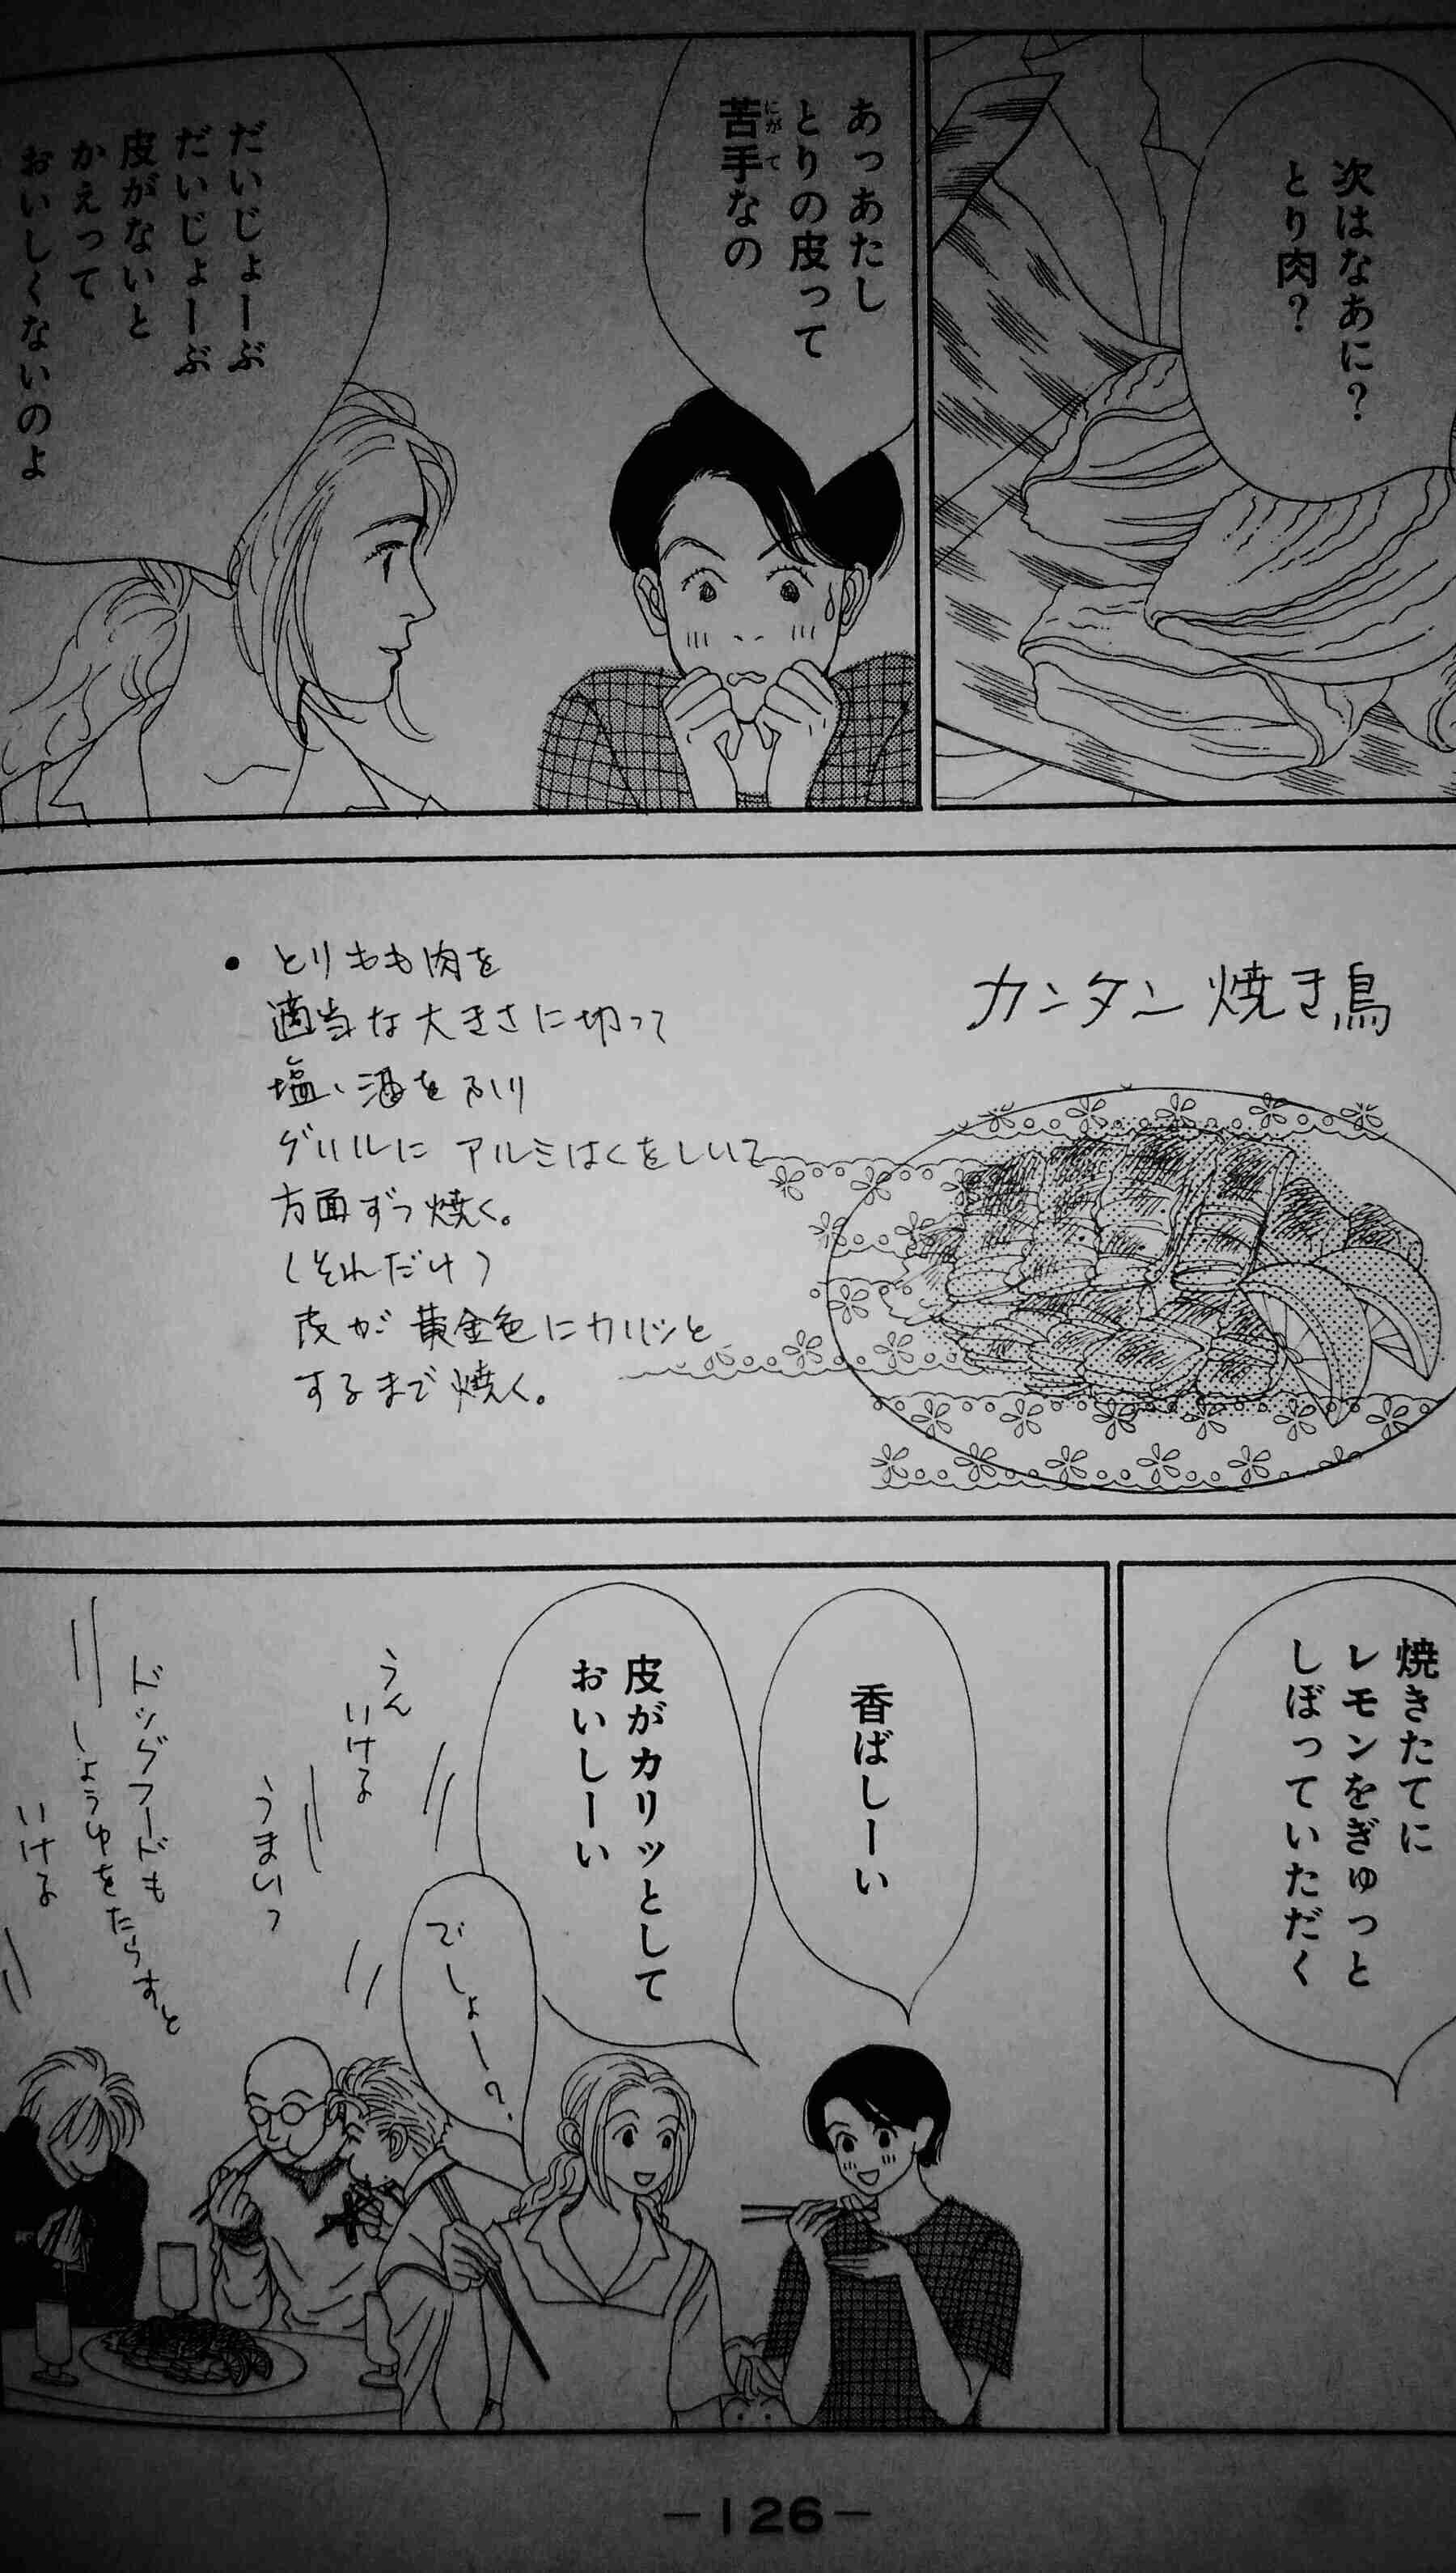 次はなあに？
とり肉？
あっあたし
とりの皮って
苦手なの
にがて
だいじょーぶ
だいじょーぶ
皮がないと
かえって
おいしくないのよ
カンタン焼き鳥
• とりもも肉を
適当な大きさに切って
塩、酒をふり
グリルにアルミはくをしいて
片面ずつ焼く。
(それだけ)
皮が黄金色にカリッと
するまで焼く。
焼きたてに
レモンをぎゅっと
しぼっていただく
香ばしーい
皮がカリッとして
おいしーい
でしょー？
うん
いける
うまいっ
ドッグフードも
しょうゆをたらすと
いける
—126—